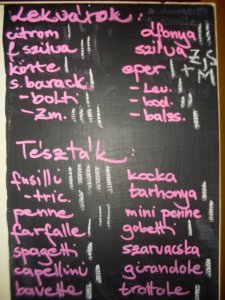 Lekvárok:
citrom
f. szilva
körte
s. barack
- bolti
- zm.
áfonya
szilva
eper
- Lev.
- bod.
- balzs.
+ZS
+M
Tészták:
fusilli
- tric.
penne
farfalle
spagetti
capellini
bavette
kocka
tarhonya
mini penne
gobetti
szarvacska
girandole
trottole